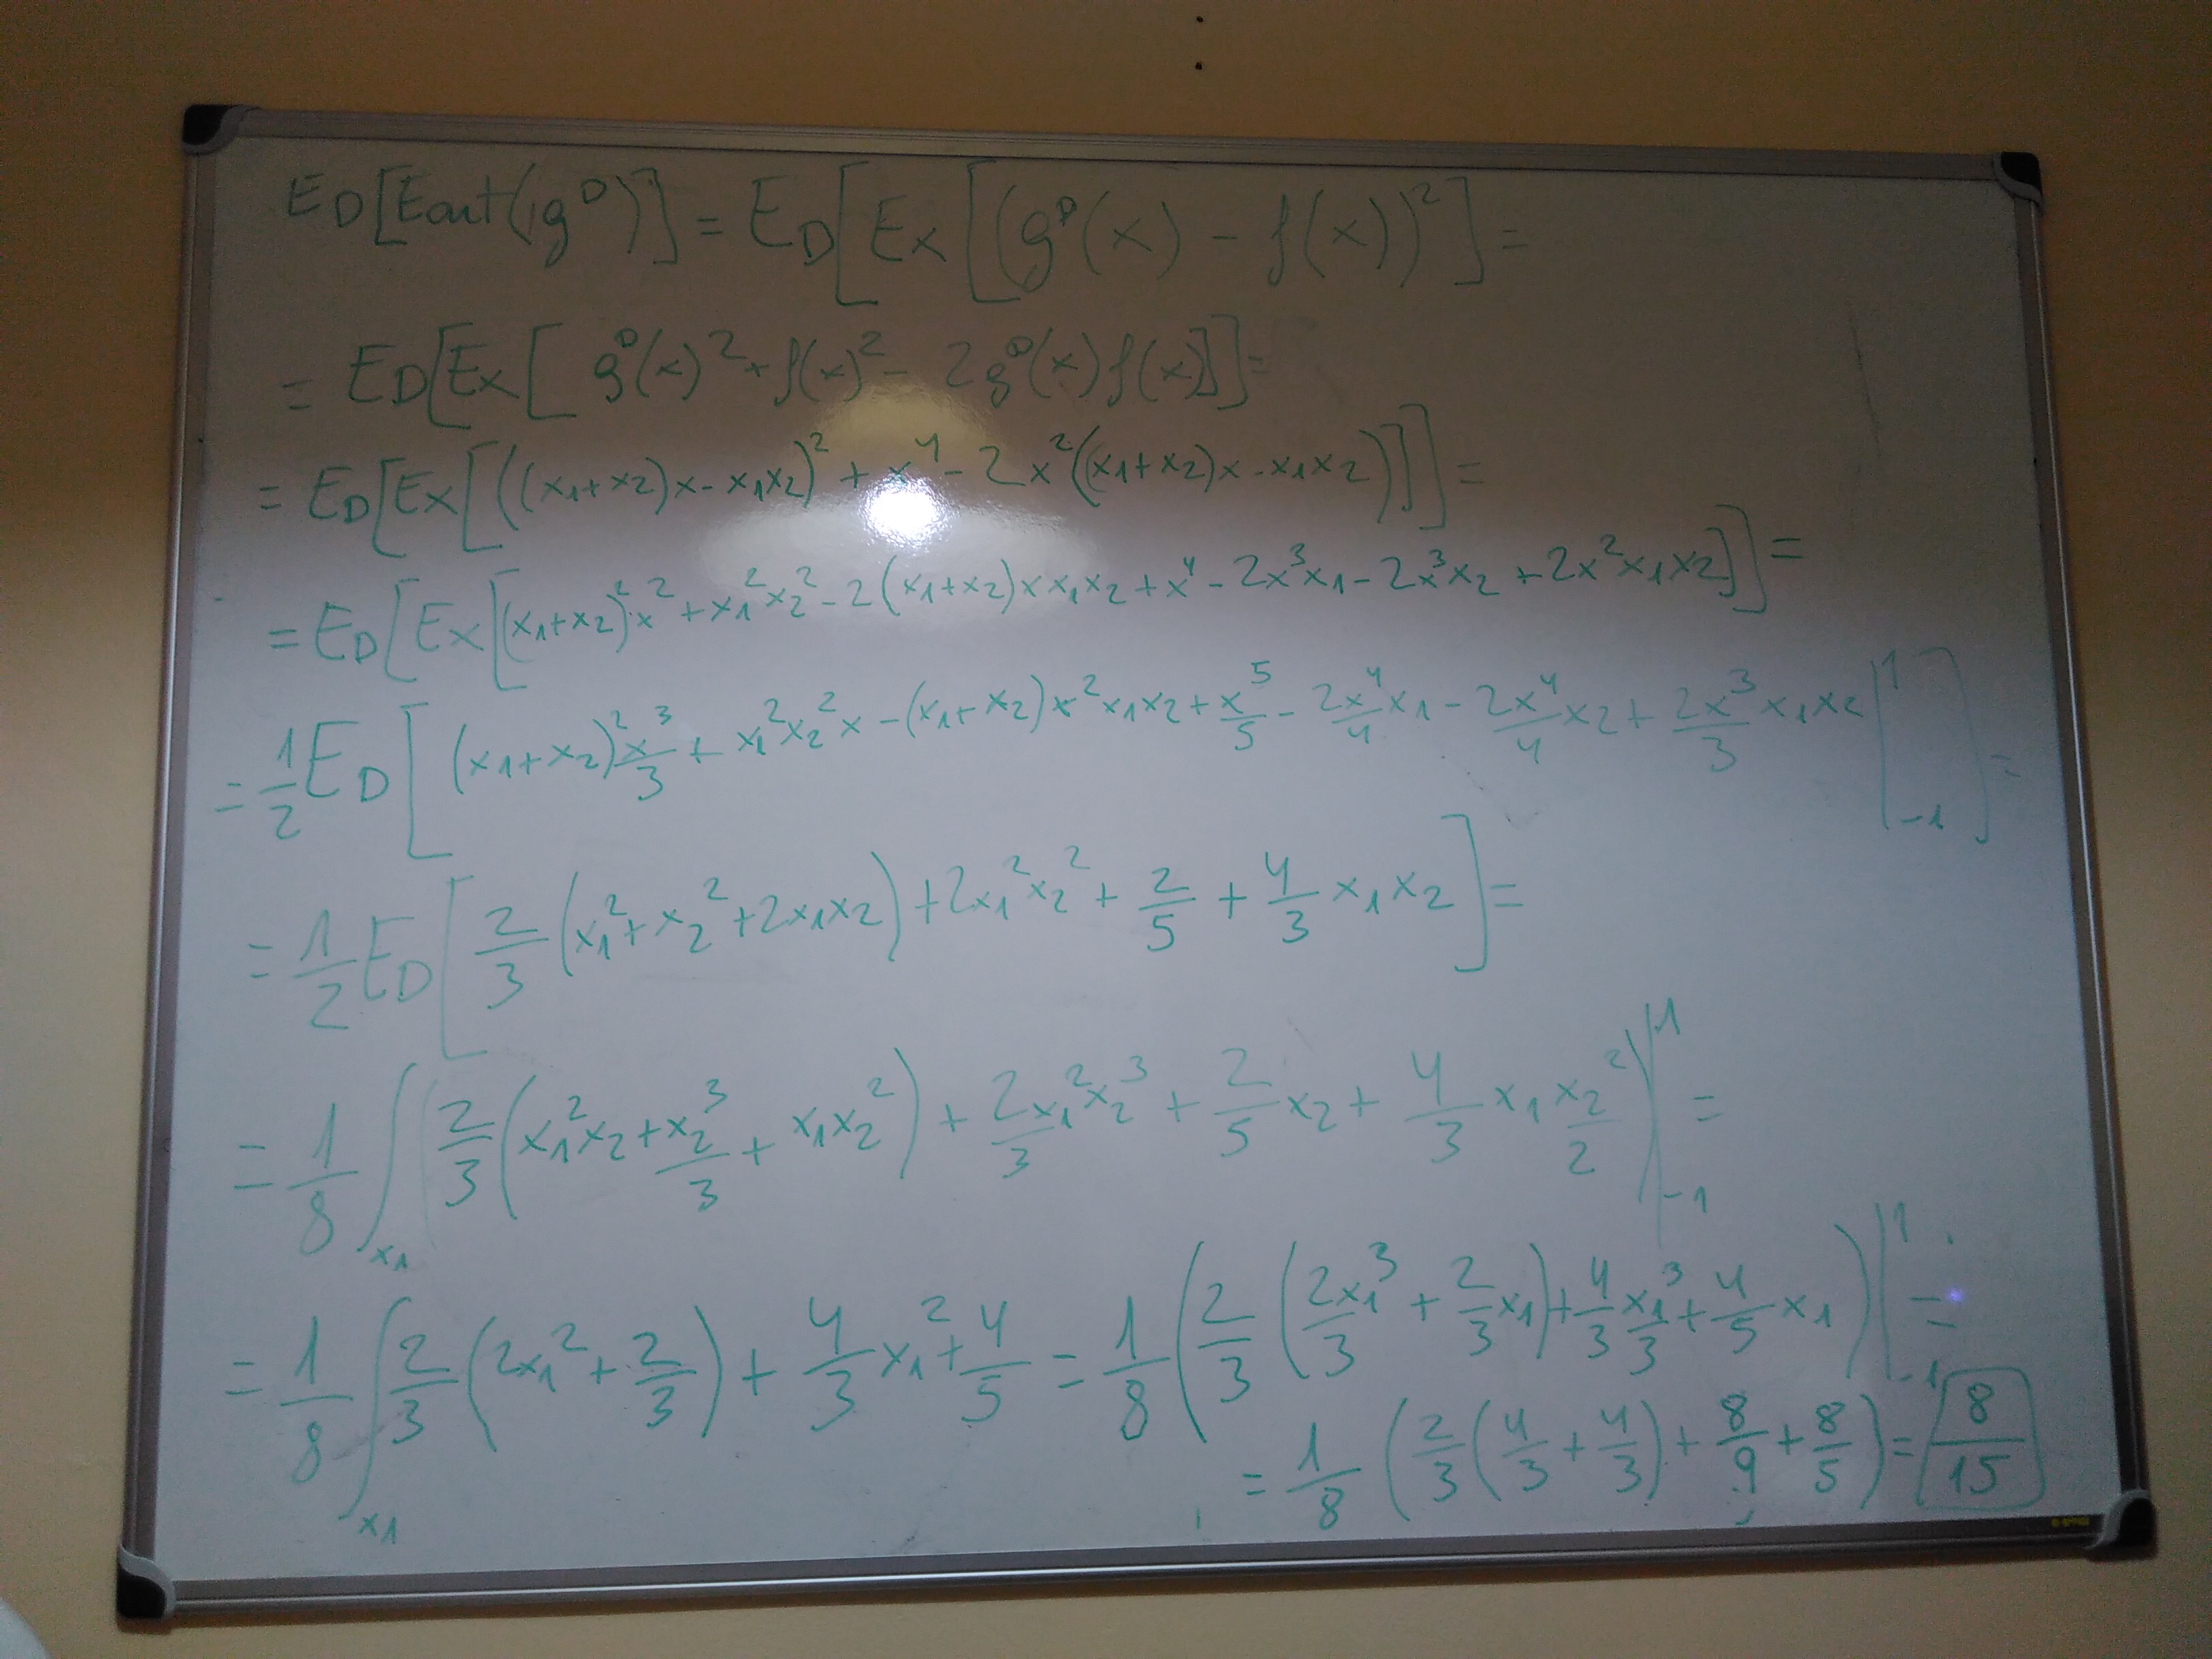 E_D[Eout(g^D)] = E_D[E_x[(g^D(x) - f(x))^2] =
= E_D[E_x[g^D(x)^2 + f(x)^2 - 2g^D(x)f(x)]] =
= E_D[E_x[((x_1+x_2)x - x_1x_2)^2 + x^4 - 2x^2((x_1+x_2)x - x_1x_2)]] =
= E_D[E_x[(x_1+x_2)^2x^2 + x_1^2x_2^2 - 2(x_1+x_2)xx_1x_2 + x^4 - 2x^3x_1 - 2x^3x_2 + 2x^2x_1x_2]] =
= 1/2 E_D[(x_1+x_2)^2 x^3/3 + x_1^2x_2^2x - (x_1+x_2)x^2x_1x_2 + x^5/5 - 2x^4/4 x_1 - 2x^4/4 x_2 + 2x^3/3 x_1x_2 |_{-1}^{1}] =
= 1/2 E_D[2/3 (x_1^2 + x_2^2 + 2x_1x_2) + 2x_1^2x_2^2 + 2/5 + 4/3 x_1x_2] =
= 1/8 ∫_{x_1} (2/3 (x_1^2x_2 + x_2^3/3 + x_1x_2^2) + 2/3 x_1^2x_2^3 + 2/5 x_2 + 4/3 x_1 x_2^2/2) |_{-1}^{1} =
= 1/8 ∫_{x_1} 2/3 (2x_1^2 + 2/3) + 4/3 x_1^2 + 4/5 = 1/8 (2/3 (2x_1^3/3 + 2/3 x_1) + 4/3 x_1^3/3 + 4/5 x_1) |_{-1}^{1} =
= 1/8 (2/3 (4/3 + 4/3) + 8/9 + 8/5) = 8/15